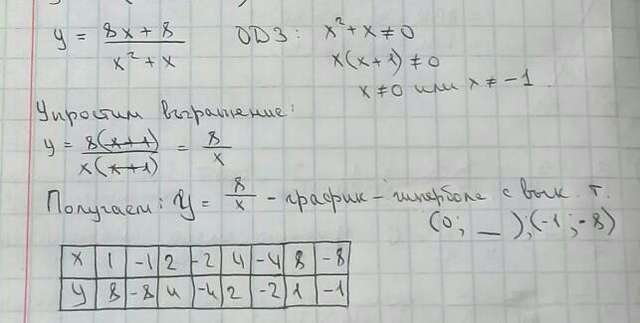 y = (8x + 8)/(x² + x) ОДЗ: x² + x ≠ 0
x(x + 1) ≠ 0
x ≠ 0 или x ≠ -1.
Упростим выражение:
y = 8(x+1)/x(x+1) = 8/x
Получаем: y = 8/x - график - гипербола с вык. т.
(0; __); (-1; -8)
x 1 -1 2 -2 4 -4 8 -8
y 8 -8 4 -4 2 -2 1 -1